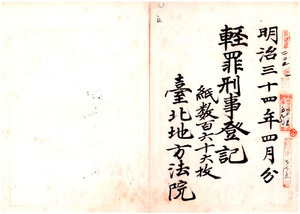 明治三十四年四月分
輕罪刑事登記
紙數百六十六枚
臺北地方法院